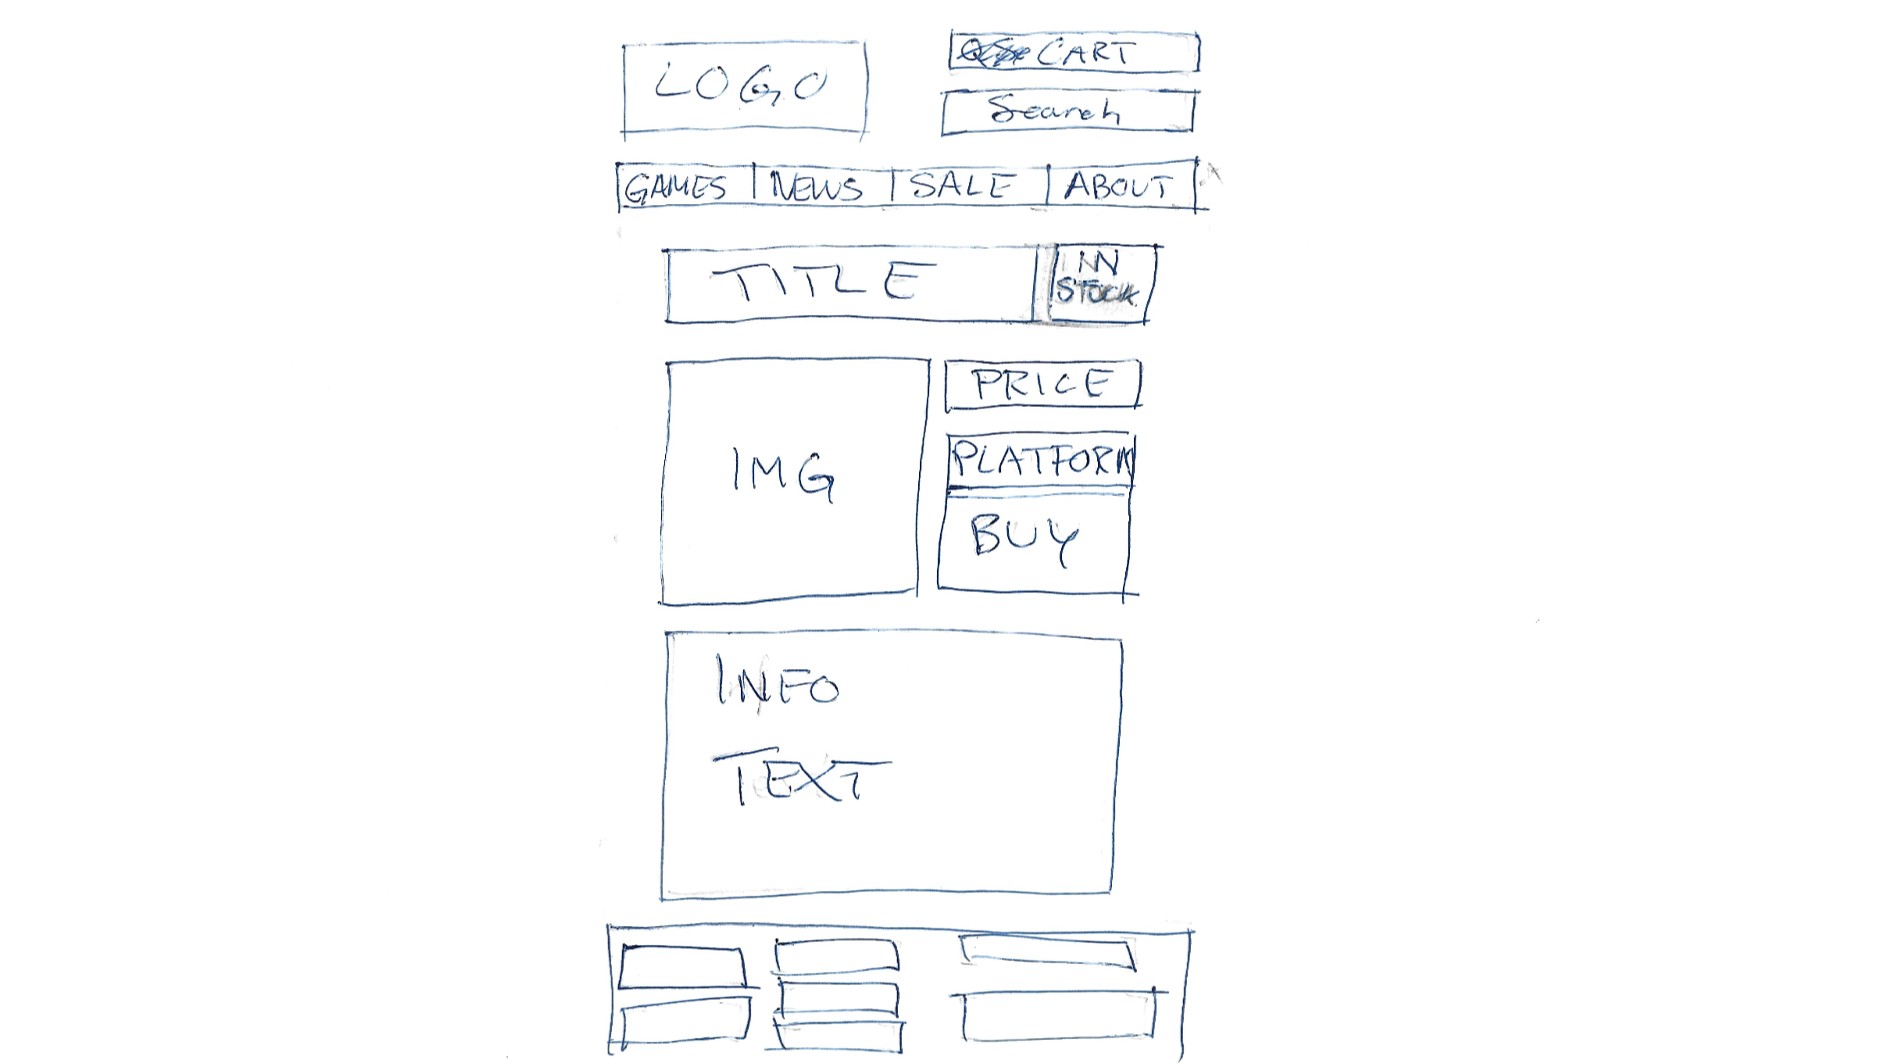 LOGO
CART
Search
GAMES NEWS SALE ABOUT
TITLE
INN
STOCK
IMG
PRICE
PLATFORM
BUY
INFO
TEXT